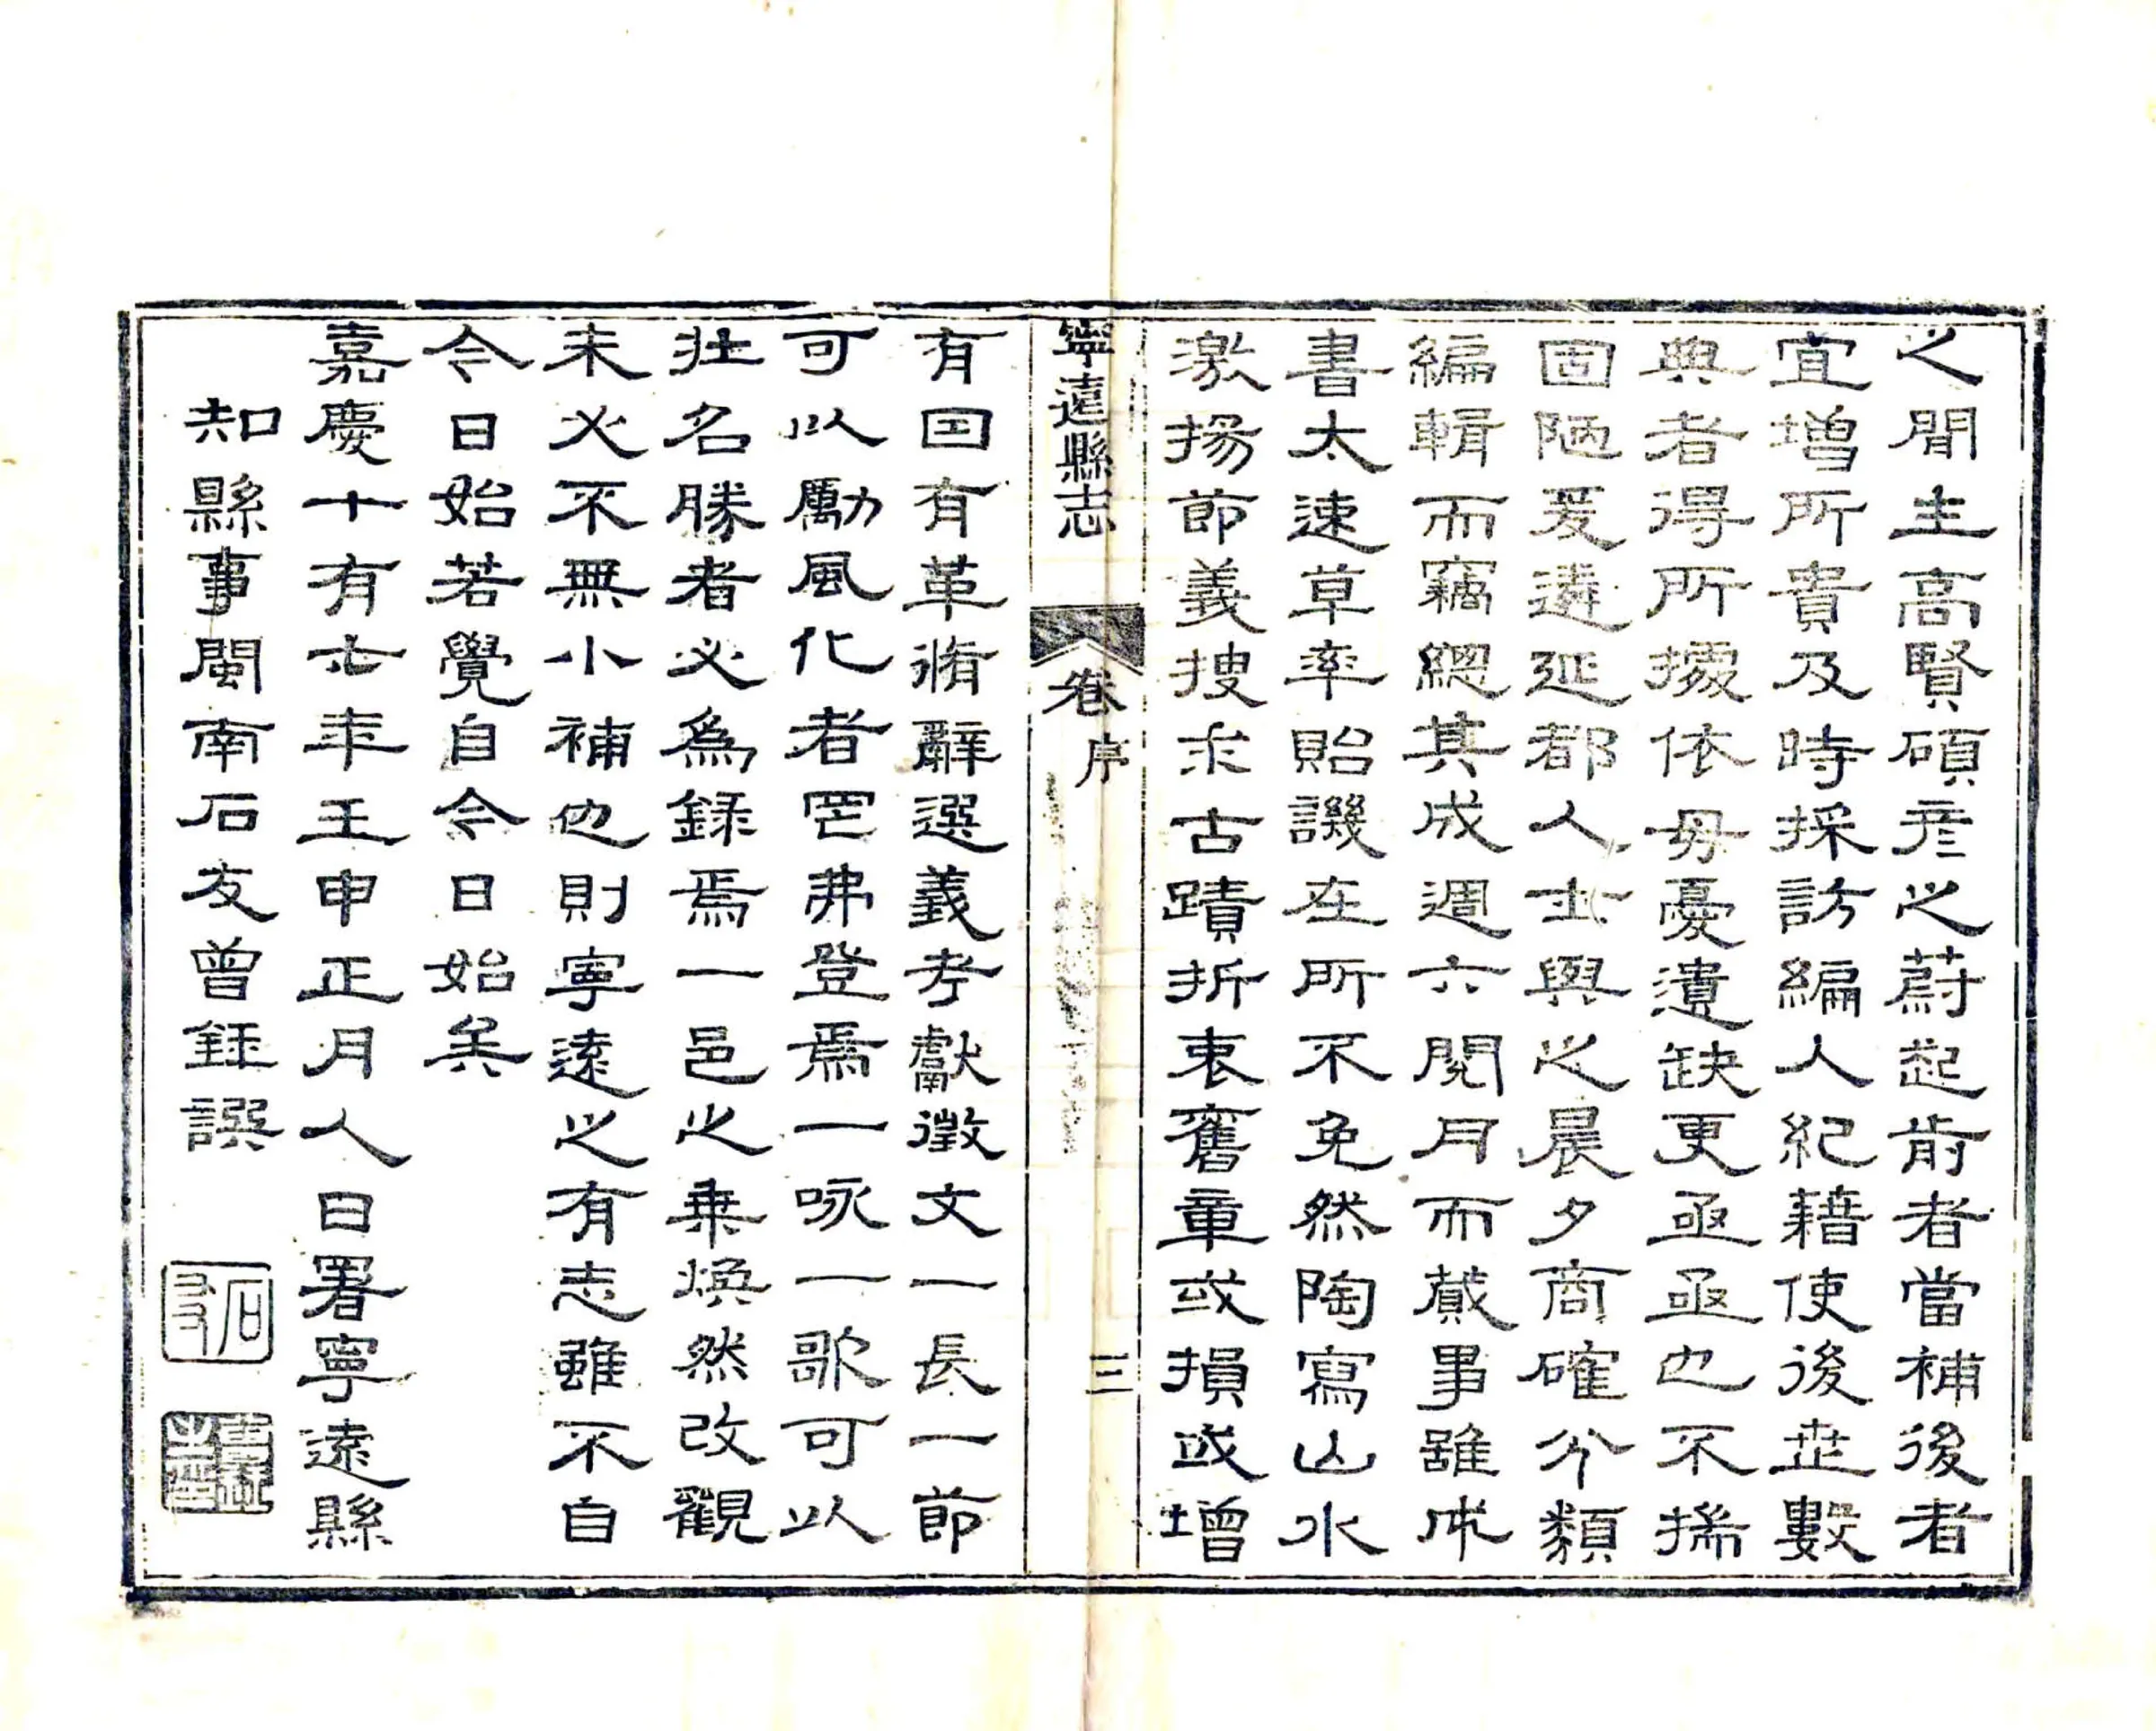 之間生高賢碩彥之蔚起前者當補後者
宜增所貴及時採訪編人紀藉使後世數
典者得所據依毋憂遺缺更亟亟也不揣
固陋爰遴延都人士與之晨夕商確分類
編輯而竊總其成週六閱月而蕆事雖成
書太速草率貽譏在所不免然陶寫山水
激揚節義搜求古蹟折衷舊章或損或增
寧遠縣志 卷 序 三
有因有革脩辭選義考獻徵文一長一節
可以勵風化者罔弗登焉一咏一歌可以
壯名勝者必為錄焉一邑之乗煥然改觀
未必不無小補也則寧遠之有志雖不自
今日始若覺自今日始矣
嘉慶十有七年壬申正月人日署寧遠縣
知縣事閩南石友曾鈺譔
石友